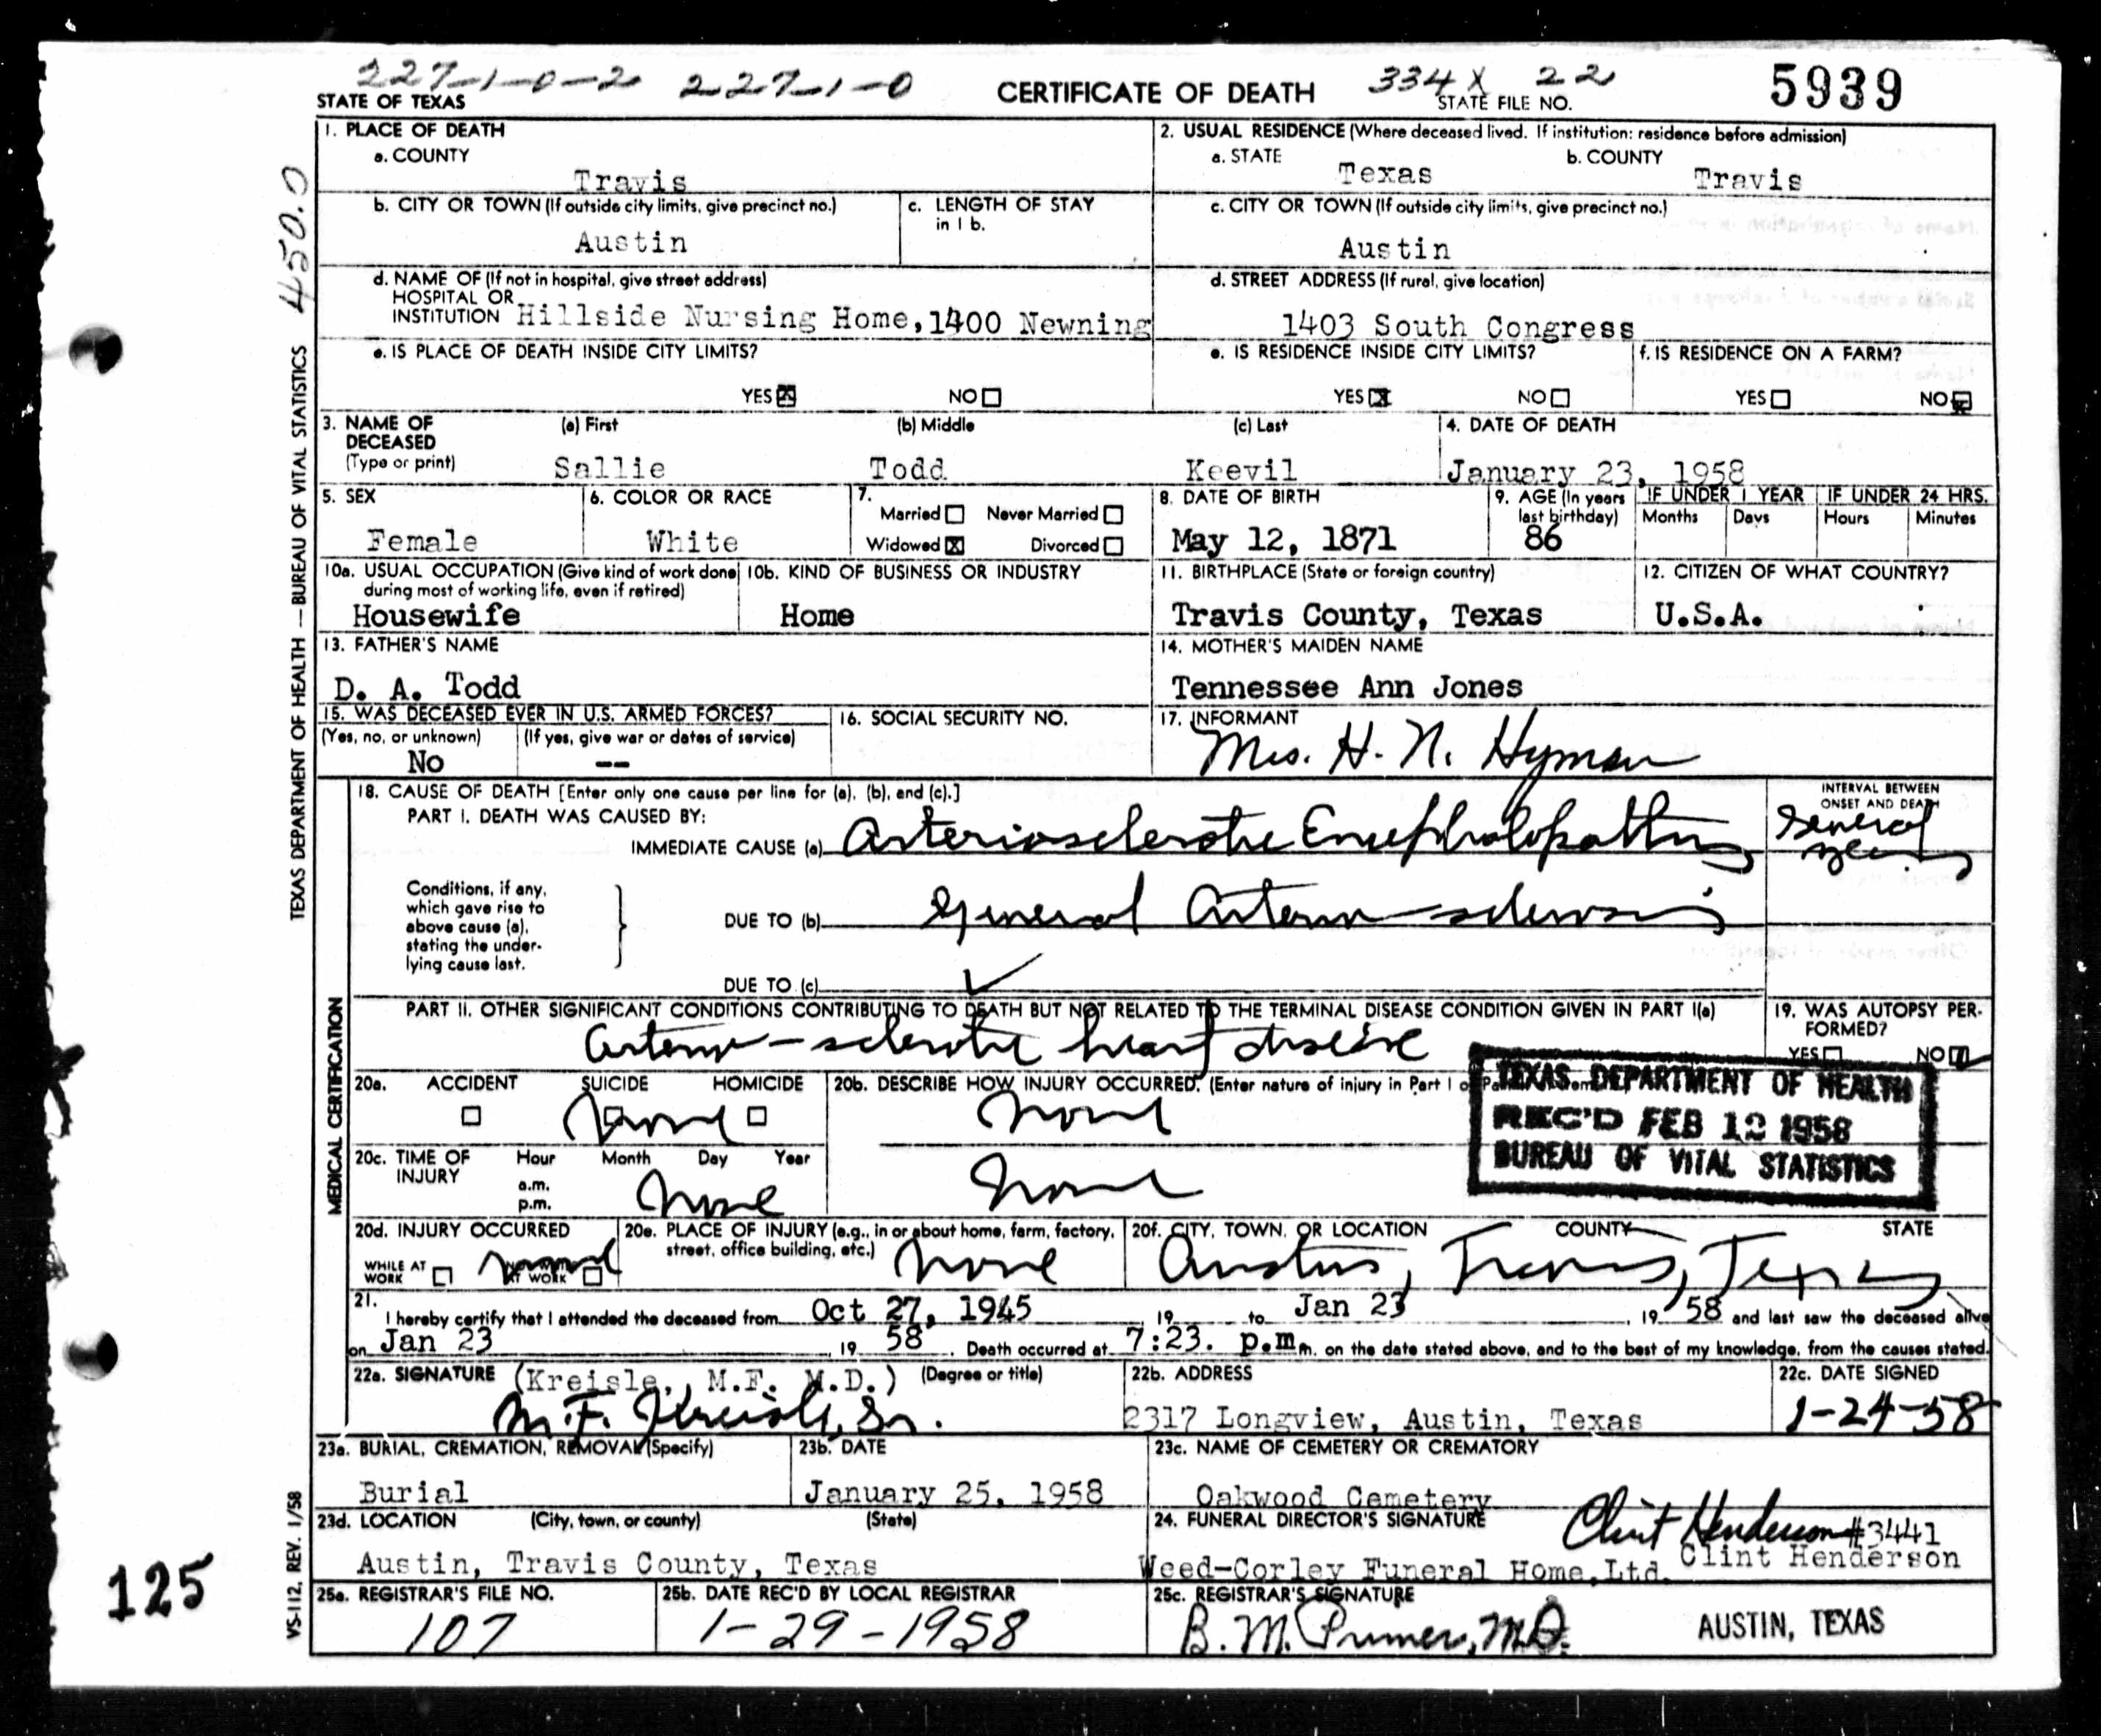 227-1-0-2 227-1-0 CERTIFICATE OF DEATH 334X 22 5939
STATE OF TEXAS STATE FILE NO.
1. PLACE OF DEATH
a. COUNTY
Travis
2. USUAL RESIDENCE (Where deceased lived. If institution: residence before admission)
a. STATE b. COUNTY
Texas Travis
b. CITY OR TOWN (If outside city limits, give precinct no.)
Austin
c. LENGTH OF STAY
in 1 b.
c. CITY OR TOWN (If outside city limits, give precinct no.)
Austin
d. NAME OF (If not in hospital, give street address)
HOSPITAL OR
INSTITUTION Hillside Nursing Home, 1400 Newning
d. STREET ADDRESS (If rural, give location)
1403 South Congress
e. IS PLACE OF DEATH INSIDE CITY LIMITS?
YES X NO
e. IS RESIDENCE INSIDE CITY LIMITS?
YES X NO
f. IS RESIDENCE ON A FARM?
YES NO X
3. NAME OF
DECEASED
(Type or print)
(a) First (b) Middle (c) Last
Sallie Todd Keevil
4. DATE OF DEATH
January 23, 1958
5. SEX
Female
6. COLOR OR RACE
White
7.
Married Never Married
Widowed X Divorced
8. DATE OF BIRTH
May 12, 1871
9. AGE (In years
last birthday)
86
IF UNDER 1 YEAR
Months Days
IF UNDER 24 HRS.
Hours Minutes
10a. USUAL OCCUPATION (Give kind of work done
during most of working life, even if retired)
Housewife
10b. KIND OF BUSINESS OR INDUSTRY
Home
11. BIRTHPLACE (State or foreign country)
Travis County, Texas
12. CITIZEN OF WHAT COUNTRY?
U.S.A.
13. FATHER'S NAME
D. A. Todd
14. MOTHER'S MAIDEN NAME
Tennessee Ann Jones
15. WAS DECEASED EVER IN U.S. ARMED FORCES?
(Yes, no, or unknown) (If yes, give war or dates of service)
No --
16. SOCIAL SECURITY NO.
17. INFORMANT
Mrs. H. N. Hyman
18. CAUSE OF DEATH [Enter only one cause per line for (a), (b), and (c).]
PART I. DEATH WAS CAUSED BY:
IMMEDIATE CAUSE (a) Arteriosclerotic Encephalopathy
INTERVAL BETWEEN
ONSET AND DEATH
Several
years
Conditions, if any,
which gave rise to
above cause (a),
stating the under-
lying cause last.
DUE TO (b) General Arterio-sclerosis
DUE TO (c)
PART II. OTHER SIGNIFICANT CONDITIONS CONTRIBUTING TO DEATH BUT NOT RELATED TO THE TERMINAL DISEASE CONDITION GIVEN IN PART I(a)
Arterio-sclerotic heart disease
19. WAS AUTOPSY PER-
FORMED?
YES NO
20a. ACCIDENT SUICIDE HOMICIDE
None
20b. DESCRIBE HOW INJURY OCCURRED. (Enter nature of injury in Part I o
None
TEXAS DEPARTMENT OF HEALTH
REC'D FEB 12 1958
BUREAU OF VITAL STATISTICS
20c. TIME OF
INJURY
Hour Month Day Year
a.m.
p.m.
None
None
20d. INJURY OCCURRED
WHILE AT
WORK
AT WORK
None
20e. PLACE OF INJURY (e.g., in or about home, farm, factory,
street, office building, etc.)
None
20f. CITY, TOWN, OR LOCATION COUNTY STATE
Austin, Travis, Texas
21.
I hereby certify that I attended the deceased from Oct 27, 1945, 19 to Jan 23, 19 58 and last saw the deceased alive
on Jan 23, 19 58. Death occurred at 7:23. p.m. m. on the date stated above, and to the best of my knowledge, from the causes stated.
22a. SIGNATURE (Kreisle, M.F. M.D.) (Degree or title)
M. F. Kreisle, Sr.
22b. ADDRESS
2317 Longview, Austin, Texas
22c. DATE SIGNED
1-24-58
23a. BURIAL, CREMATION, REMOVAL (Specify)
Burial
23b. DATE
January 25, 1958
23c. NAME OF CEMETERY OR CREMATORY
Oakwood Cemetery
23d. LOCATION (City, town, or county) (State)
Austin, Travis County, Texas
24. FUNERAL DIRECTOR'S SIGNATURE
Clint Henderson #3441
Weed-Corley Funeral Home, Ltd. Clint Henderson
25a. REGISTRAR'S FILE NO.
107
25b. DATE REC'D BY LOCAL REGISTRAR
1-29-1958
25c. REGISTRAR'S SIGNATURE
B. M. Primer, M.D. AUSTIN, TEXAS
450.0
TEXAS DEPARTMENT OF HEALTH — BUREAU OF VITAL STATISTICS
MEDICAL CERTIFICATION
VS-112, REV. 1/58
125